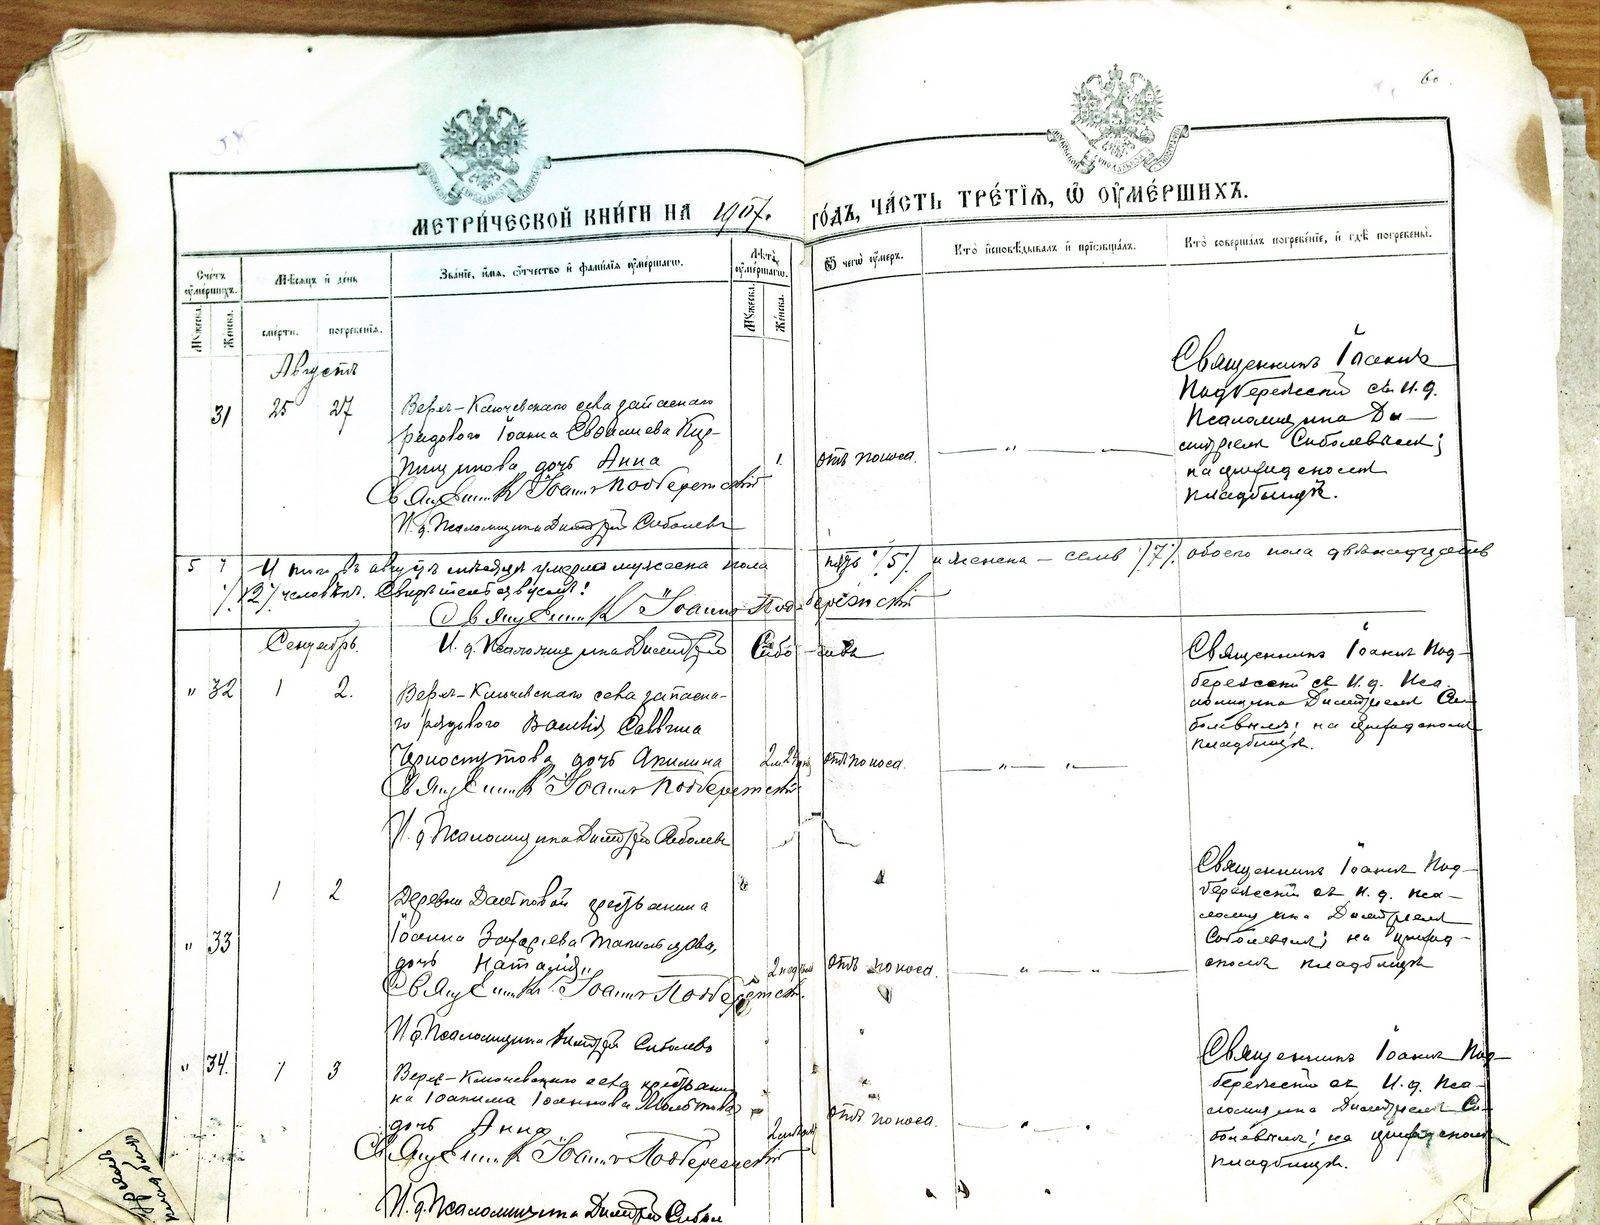 60
МЕТРИ́ЧЕСКОЙ КНИ́ГИ НА 1907. ГО́ДЪ, ЧА́СТЬ ТРЕ́ТІѦ, Ѿ ОУ҆МЕ́РШИХЪ.
Сче́тъ оу҆ме́ршихъ.
Мꙋжеска.
Же́нска.
Мѣ́сяцъ и҆ де́нь
сме́рти.
погребе́нїѧ.
Зва́нїе, и҆́мѧ, ѻ҆́тчество и҆ фами́лїѧ оу҆ме́ршагѡ.
Лѣ́та оу҆ме́ршагѡ.
Мꙋжеска.
Же́нска.
Ѿ чегѡ̀ оу҆́меръ.
Кто̀ и҆сповѣ́дывалъ и҆ прїѡбща́лъ.
Кто̀ соверша́лъ погребе́нїе, и҆ гдѣ̀ погребены̀.
Августъ
31 25 27 Верхъ-Ключевскаго села запаснаго
рядового Іоанна
дочь Анна 1. отъ поноса. — " —
Священникъ Іоаннъ Подбережскій
И. д. Псаломщика Димитрій Соболевъ
Священникъ Іоаннъ
Подбережскій съ И. д.
Псаломщика Ди-
митріемъ Соболевымъ;
на приходскомъ
кладбищѣ.
5 7 Итого въ августѣ мѣсяцѣ умерло мужеска пола пять /5/ и женска — семь /7/ обоего пола двѣнадцать
/12/ человѣкъ.
Священникъ Іоаннъ Подбережскій
Сентябрь.
И. д. Псаломщика Димитрій Соболевъ
" 32 1 2. Верхъ-Ключевскаго села запасна-
го рядового Василія Саввина
дочь Акилина 2 м 24 дн отъ поноса. — " — " —
Священникъ Іоаннъ Подбережскій
И. д. Псаломщика Димитрій Соболевъ
Священникъ Іоаннъ Под-
бережскій съ И. д. Пса-
ломщика Димитріемъ Со-
болевымъ; на приходскомъ
кладбищѣ.
" 33 1 2 Деревни крестьянина
Іоанна Захаріева
дочь Наталія 2 отъ поноса. — " — " —
Священникъ Іоаннъ Подбережскій.
И. д. Псаломщика Димитрій Соболевъ
Священникъ Іоаннъ Под-
бережскій съ И. д. Пса-
ломщика Димитріемъ
Соболевымъ; на приход-
скомъ кладбищѣ
" 34. 1 3 Верхъ-Ключевскаго села крестьяни-
на Іоакима Іоаннова
дочь Анна 2 отъ поноса.
Священникъ Іоаннъ Подбережскій
И. д. Псаломщика Димитрій
Священникъ Іоаннъ Под-
бережскій съ И. д. Пса-
ломщика Димитріемъ Со-
болевымъ; на приходскомъ
кладбищѣ.